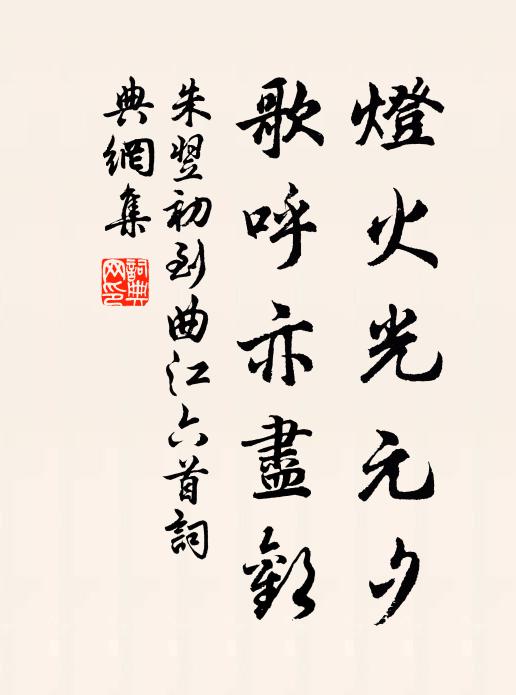 燈火光元夕
歌呼亦盡歡
朱翌初到曲江六首詞
典網集
詞典
网印